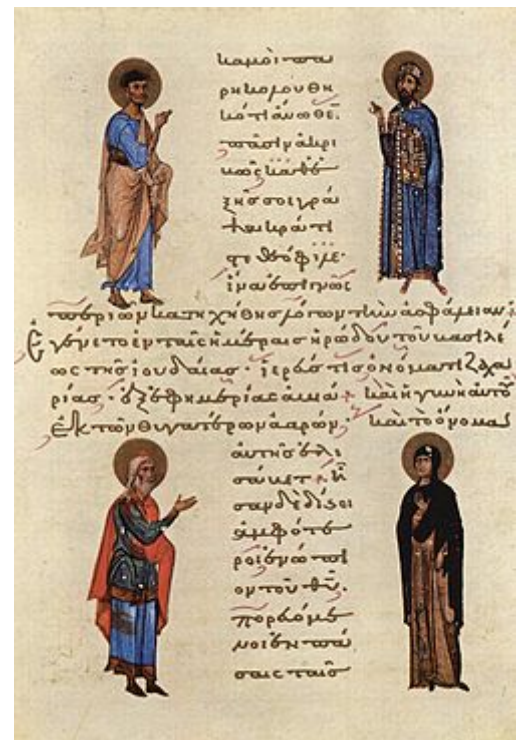 καμοὶ πα
ρηκολουθη
κότι ἄνωθε̄
πᾶσιν ἀκρι
βῶς καθε
ξῆς σοι γρά
ψαι κράτι
στε θεόφιλε·
ἵνα ἐπιγνῶς
περὶ ὧν κατηχήθης λόγων τὴν ἀσφάλειαν·
Ἐγένετο ἐν ταῖς ἡμέραις ἡρώδου τοῦ βασιλέ
ως τῆς ἰουδαίας· ἱερεύς τις ὀνόματι ζαχα
ρίας· ἐξ ἐφημερίας ἀβιά· καὶ ἡ γυνὴ αὐτοῦ
ἐκ τῶν θυγατέρων ἀαρών· καὶ τὸ ὄνομα
αὐτῆς ἐλι
σάβετ·
ἀμφότε
ροι ἐνώπι
ον τοῦ θῡ·
πορευόμε
νοι ἐν πά
σαις ταῖς